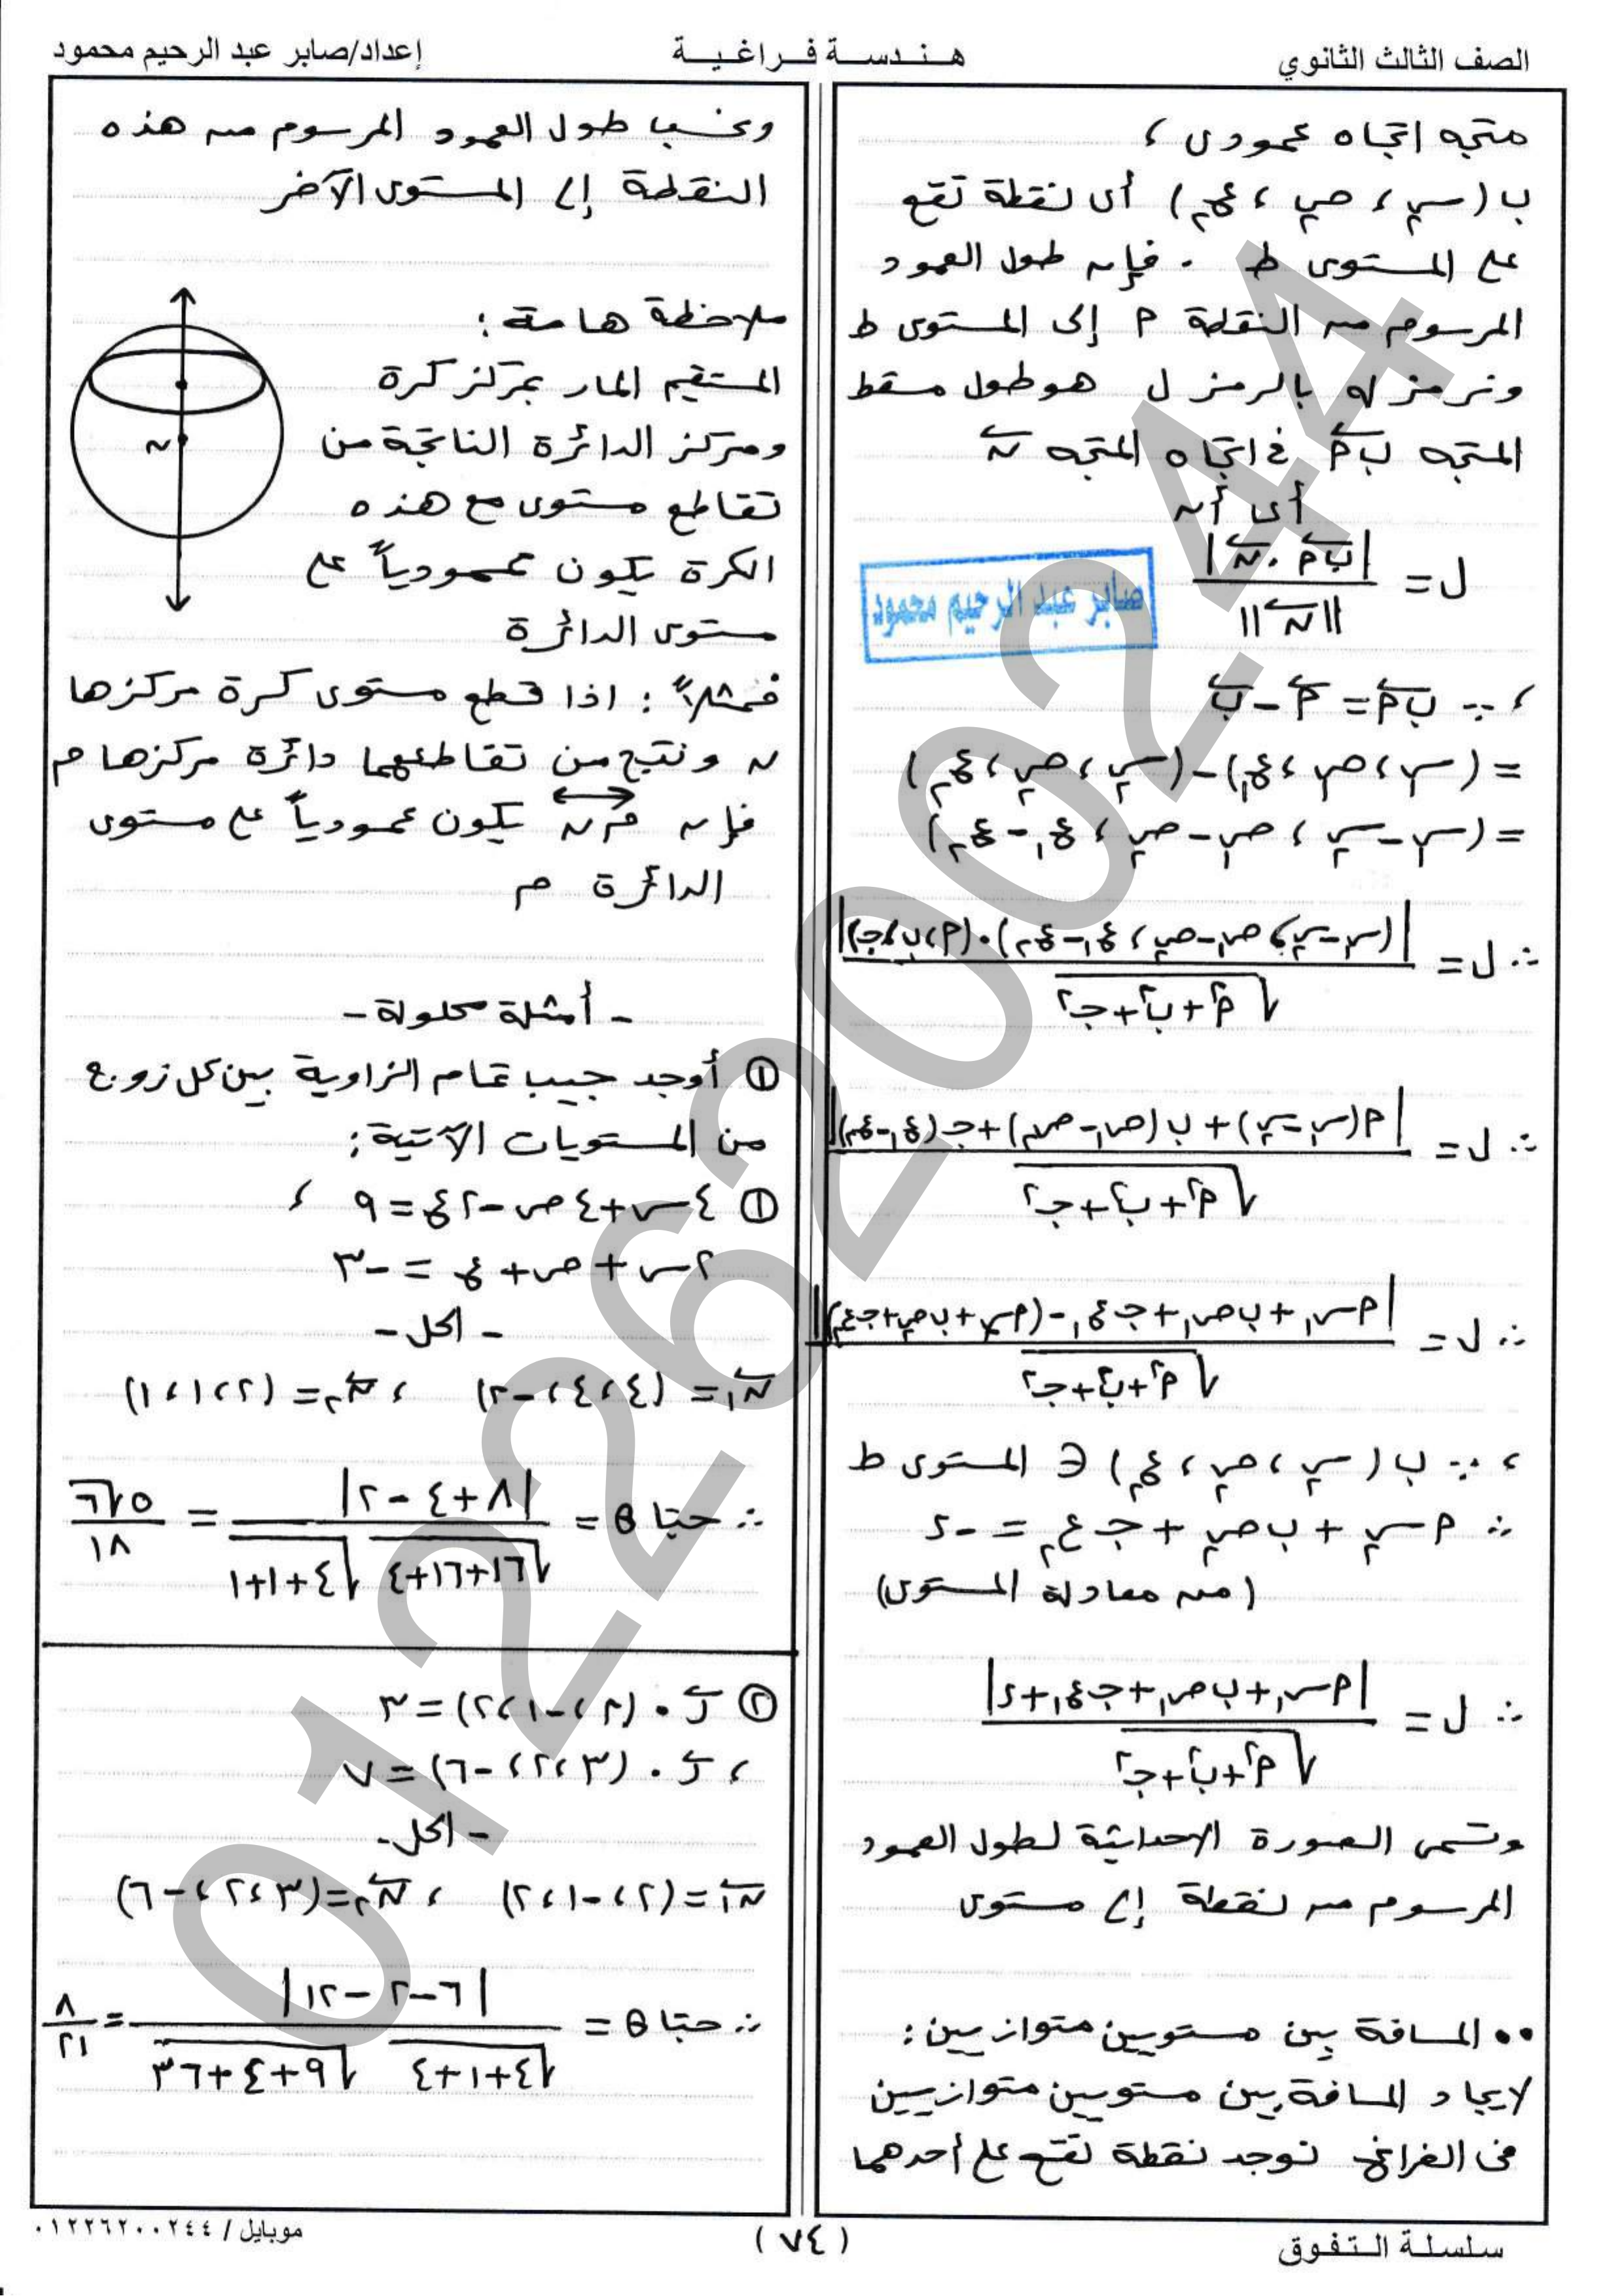 الصف الثالث الثانوي
هندسة فراغية
إعداد/صابر عبد الرحيم محمود
متجه اتجاه عمودى ،
ب (س٢ ، ص٢ ، ع٢) أى نقطة تقع
على المستوى ط . فإن طول العمود
المرسوم من النقطة م إلى المستوى ط
ونرمز له بالرمز ل هو طول مسقط
المتجه ب م فى اتجاه المتجه ن
أى أن
ل = |ب م . ن| / ||ن||
صابر عبد الرحيم محمود
، ∵ ب م = م - ب
= (س١ ، ص١ ، ع١) - (س٢ ، ص٢ ، ع٢)
= (س١ - س٢ ، ص١ - ص٢ ، ع١ - ع٢)
∴ ل = |(س١ - س٢ ، ص١ - ص٢ ، ع١ - ع٢) . (م ، ب ، جـ)| / √(م٢ + ب٢ + جـ٢)
∴ ل = |م(س١ - س٢) + ب(ص١ - ص٢) + جـ(ع١ - ع٢)| / √(م٢ + ب٢ + جـ٢)
∴ ل = |م س١ + ب ص١ + جـ ع١ - (م س٢ + ب ص٢ + جـ ع٢)| / √(م٢ + ب٢ + جـ٢)
، ∵ ب (س٢ ، ص٢ ، ع٢) ∈ المستوى ط
∴ م س٢ + ب ص٢ + جـ ع٢ = -د
(من معادلة المستوى)
∴ ل = |م س١ + ب ص١ + جـ ع١ + د| / √(م٢ + ب٢ + جـ٢)
وتسمى الصورة الاحداثية لطول العمود
المرسوم من نقطة إلى مستوى
•• المسافة بين مستويين متوازيين :
لايجاد المسافة بين مستويين متوازيين
فى الفراغ نوجد نقطة تقع على أحدهما
ونحسب طول العمود المرسوم من هذه
النقطة إلى المستوى الآخر
ملاحظة هامة :
المستقيم المار بمركز كرة
ومركز الدائرة الناتجة من
تقاطع مستوى مع هذه
الكرة يكون عمودياً على
مستوى الدائرة
ن
فمثلاً : اذا قطع مستوى كرة مركزها
ن ونتج من تقاطعهما دائرة مركزها م
فإن م ن يكون عمودياً على مستوى
الدائرة م
- أمثلة محلولة -
① أوجد جيب تمام الزاوية بين كل زوج
من المستويات الآتية :
① ٤س + ٤ص - ٢ع = ٩ ،
٢س + ص + ع = -٣
- الحل -
ن١ = (٤ ، ٤ ، -٢) ، ن٢ = (٢ ، ١ ، ١)
∴ حتا θ = |٨ + ٤ - ٢| / √(١٦+١٦+٤) √(٤+١+١) = ٥√٦ / ١٨
② ر . (٢ ، -١ ، ٢) = ٣
، ر . (٣ ، ٢ ، -٦) = ٧
- الحل -
ن١ = (٢ ، -١ ، ٢) ، ن٢ = (٣ ، ٢ ، -٦)
∴ حتا θ = |٦ - ٢ - ١٢| / √(٤+١+٤) √(٩+٤+٣٦) = ٨ / ٢١
سلسلة التفوق
(٧٤)
موبايل / ٠١٢٢٦٢٠٠٢٤٤
01226200244